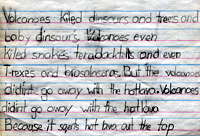 Volcanoes Killed dinsours and trees and
baby dinsours. Volcanoes even
killed snakes teradacktells and even
T-rexes and brosalosores. But the volcanoes
dididnt go away with the hot lava. Volcanoes
didint go away with the hot lava
Because it sqerts hot lava out the top